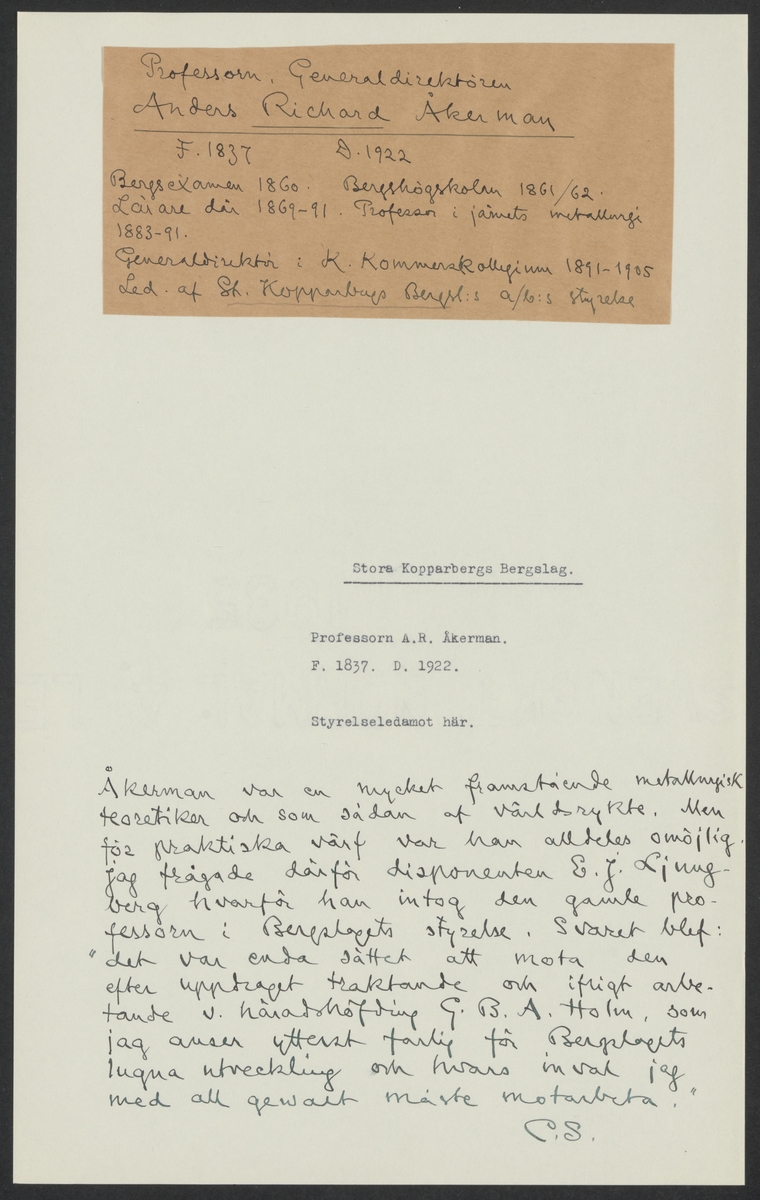 Professorn, Generaldirektören
Anders Richard Åkerman
F. 1837 D. 1922
Bergsexamen 1860. Bergshögskolan 1861/62.
Lärare där 1869-91. Professor i järnets metallurgi
1883-91.
Generaldirektör i K. Kommerskollegium 1891-1905
Led. af St. Kopparbergs Bergsl:s a/b:s styrelse
Stora Kopparbergs Bergslag.
Professorn A.R. Åkerman.
F. 1837. D. 1922.
Styrelseledamot här.
Åkerman var en mycket framstående metallurgisk
teoretiker och som sådan af världsrykte. Men
för praktiska värf var han alldeles omöjlig.
Jag frågade därför disponenten E. J. Ljung-
berg hvarför han intog den gamle pro-
fessorn i Bergslagets styrelse. Svaret blef:
"det var enda sättet att mota den
efter uppdraget traktande och ifrigt arbe-
tande v. häradshöfding G. B. A. Holm, som
jag anser ytterst farlig för Bergslagets
lugna utveckling och hvars inval jag
med all gewalt måste motarbeta."
C.S.